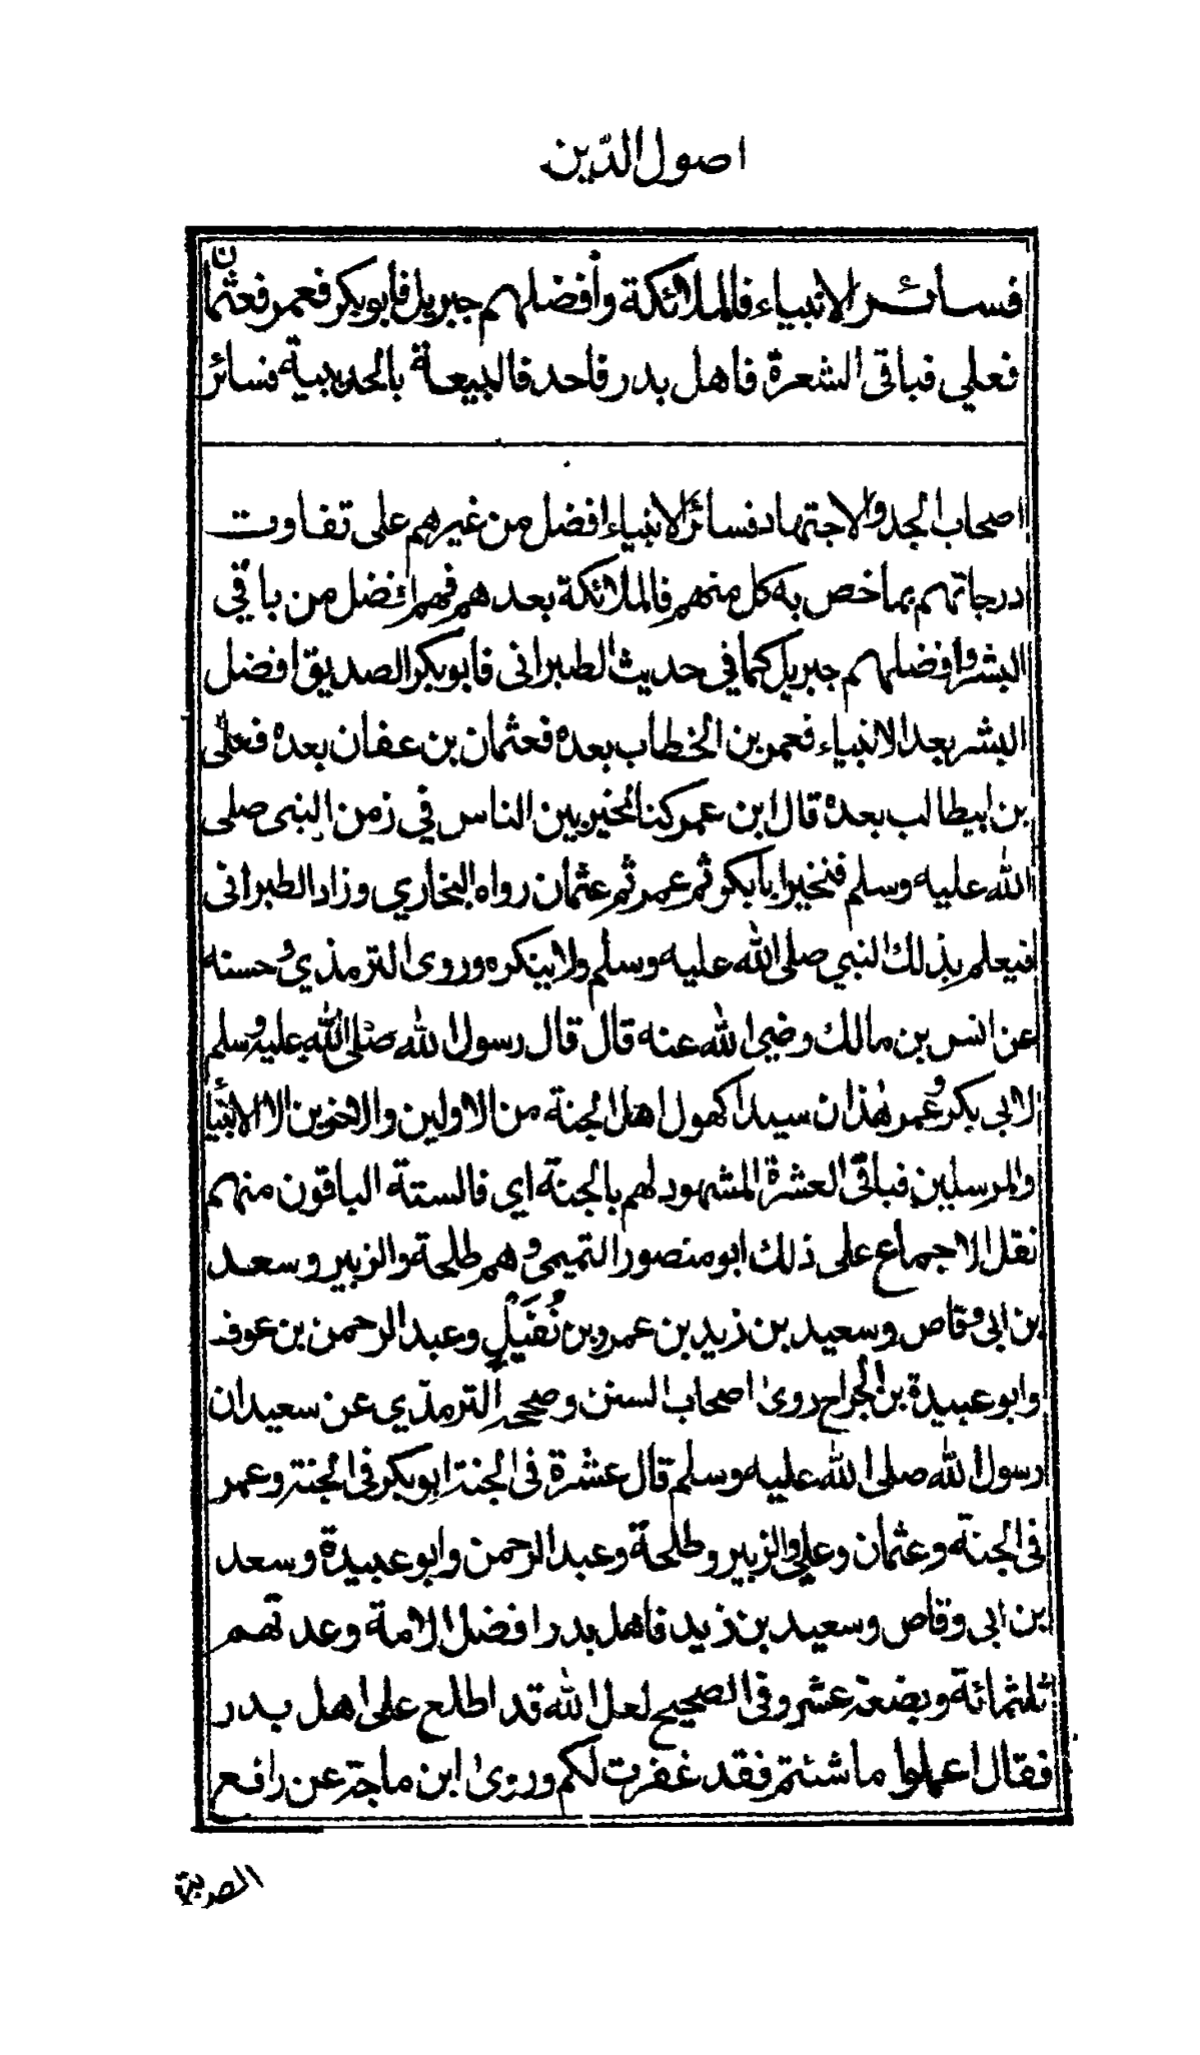 اصول الدّين
فسائر الانبياء فالملائكة وأفضلهم جبريل فأبوبكر فعمر فعثمان
فعلي فباقى الشعرة فاهل بدر فاحد فالبيعة بالحديبية فسائر
اصحاب الجد والاجتهاد فسائر الانبياء افضل من غيرهم على تفاوت
درجاتهم بما خص به كل منهم فالملائكة بعدهم فهم افضل من باقي
البشر وافضلهم جبريل كما في حديث الطبرانى فأبوبكر الصديق افضل
البشر بعد الانبياء فعمر بن الخطاب بعده فعثمان بن عفان بعده فعلى
بن ابيطالب بعده قال ابن عمر كنا نخير بين الناس في زمن النبى صلى
الله عليه وسلم فنخير ابابكر ثم عمر ثم عثمان رواه البخاري وزاد الطبرانى
فيعلم بذلك النبي صلى الله عليه وسلم ولا ينكره وروى الترمذي وحسنه
عن انس بن مالك رضي الله عنه قال قال رسول الله صلى الله عليه وسلم
لابى بكر وعمر هذان سيدا كهول اهل الجنة من الاولين والاخرين الا الانبيا
والمرسلين فباقى العشرة المشهود لهم بالجنة اي فالستة الباقون منهم
نقل الاجماع على ذلك ابو منصور التميمى وهم طلحة والزبير وسعد
بن ابى وقاص وسعيد بن زيد بن عمرو بن نُفَيْل وعبد الرحمن بن عوف
وابو عبيدة بن الجراح روى اصحاب السنن وصححه الترمذي عن سعيد ان
رسول الله صلى الله عليه وسلم قال عشرة فى الجنة ابوبكر فى الجنة وعمر
فى الجنة وعثمان وعلي والزبير وطلحة وعبد الرحمن وابو عبيدة وسعد
بن ابى وقاص وسعيد بن زيد فاهل بدر افضل الامة وعدتهم
ثلثمائة وبضعة عشر وفى الصحيح لعل الله قد اطلع على اهل بدر
فقال اعملوا ما شئتم فقد غفرت لكم وروى ابن ماجة عن رافع